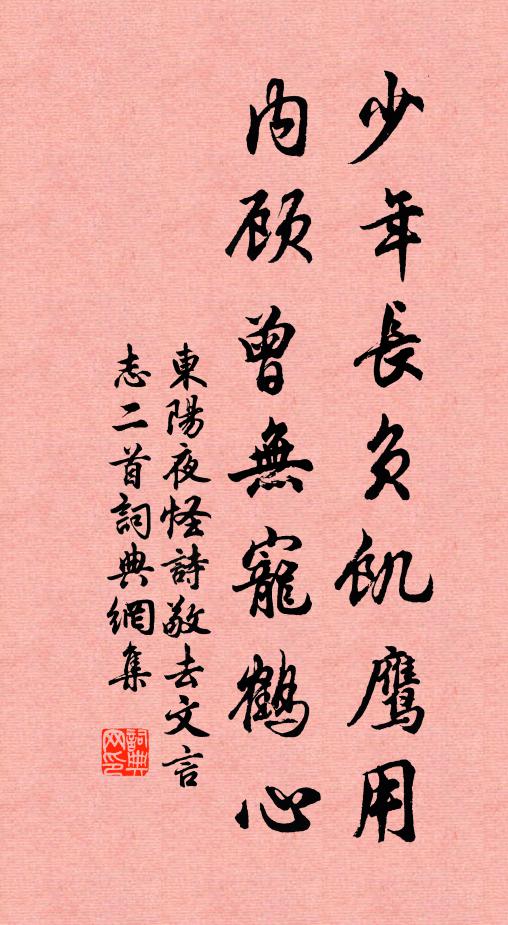 少年長負飢鹰用
内顾曾無寵鶴心
東陽夜怪詩敬去文言
志二首詞典網集
詞典网印